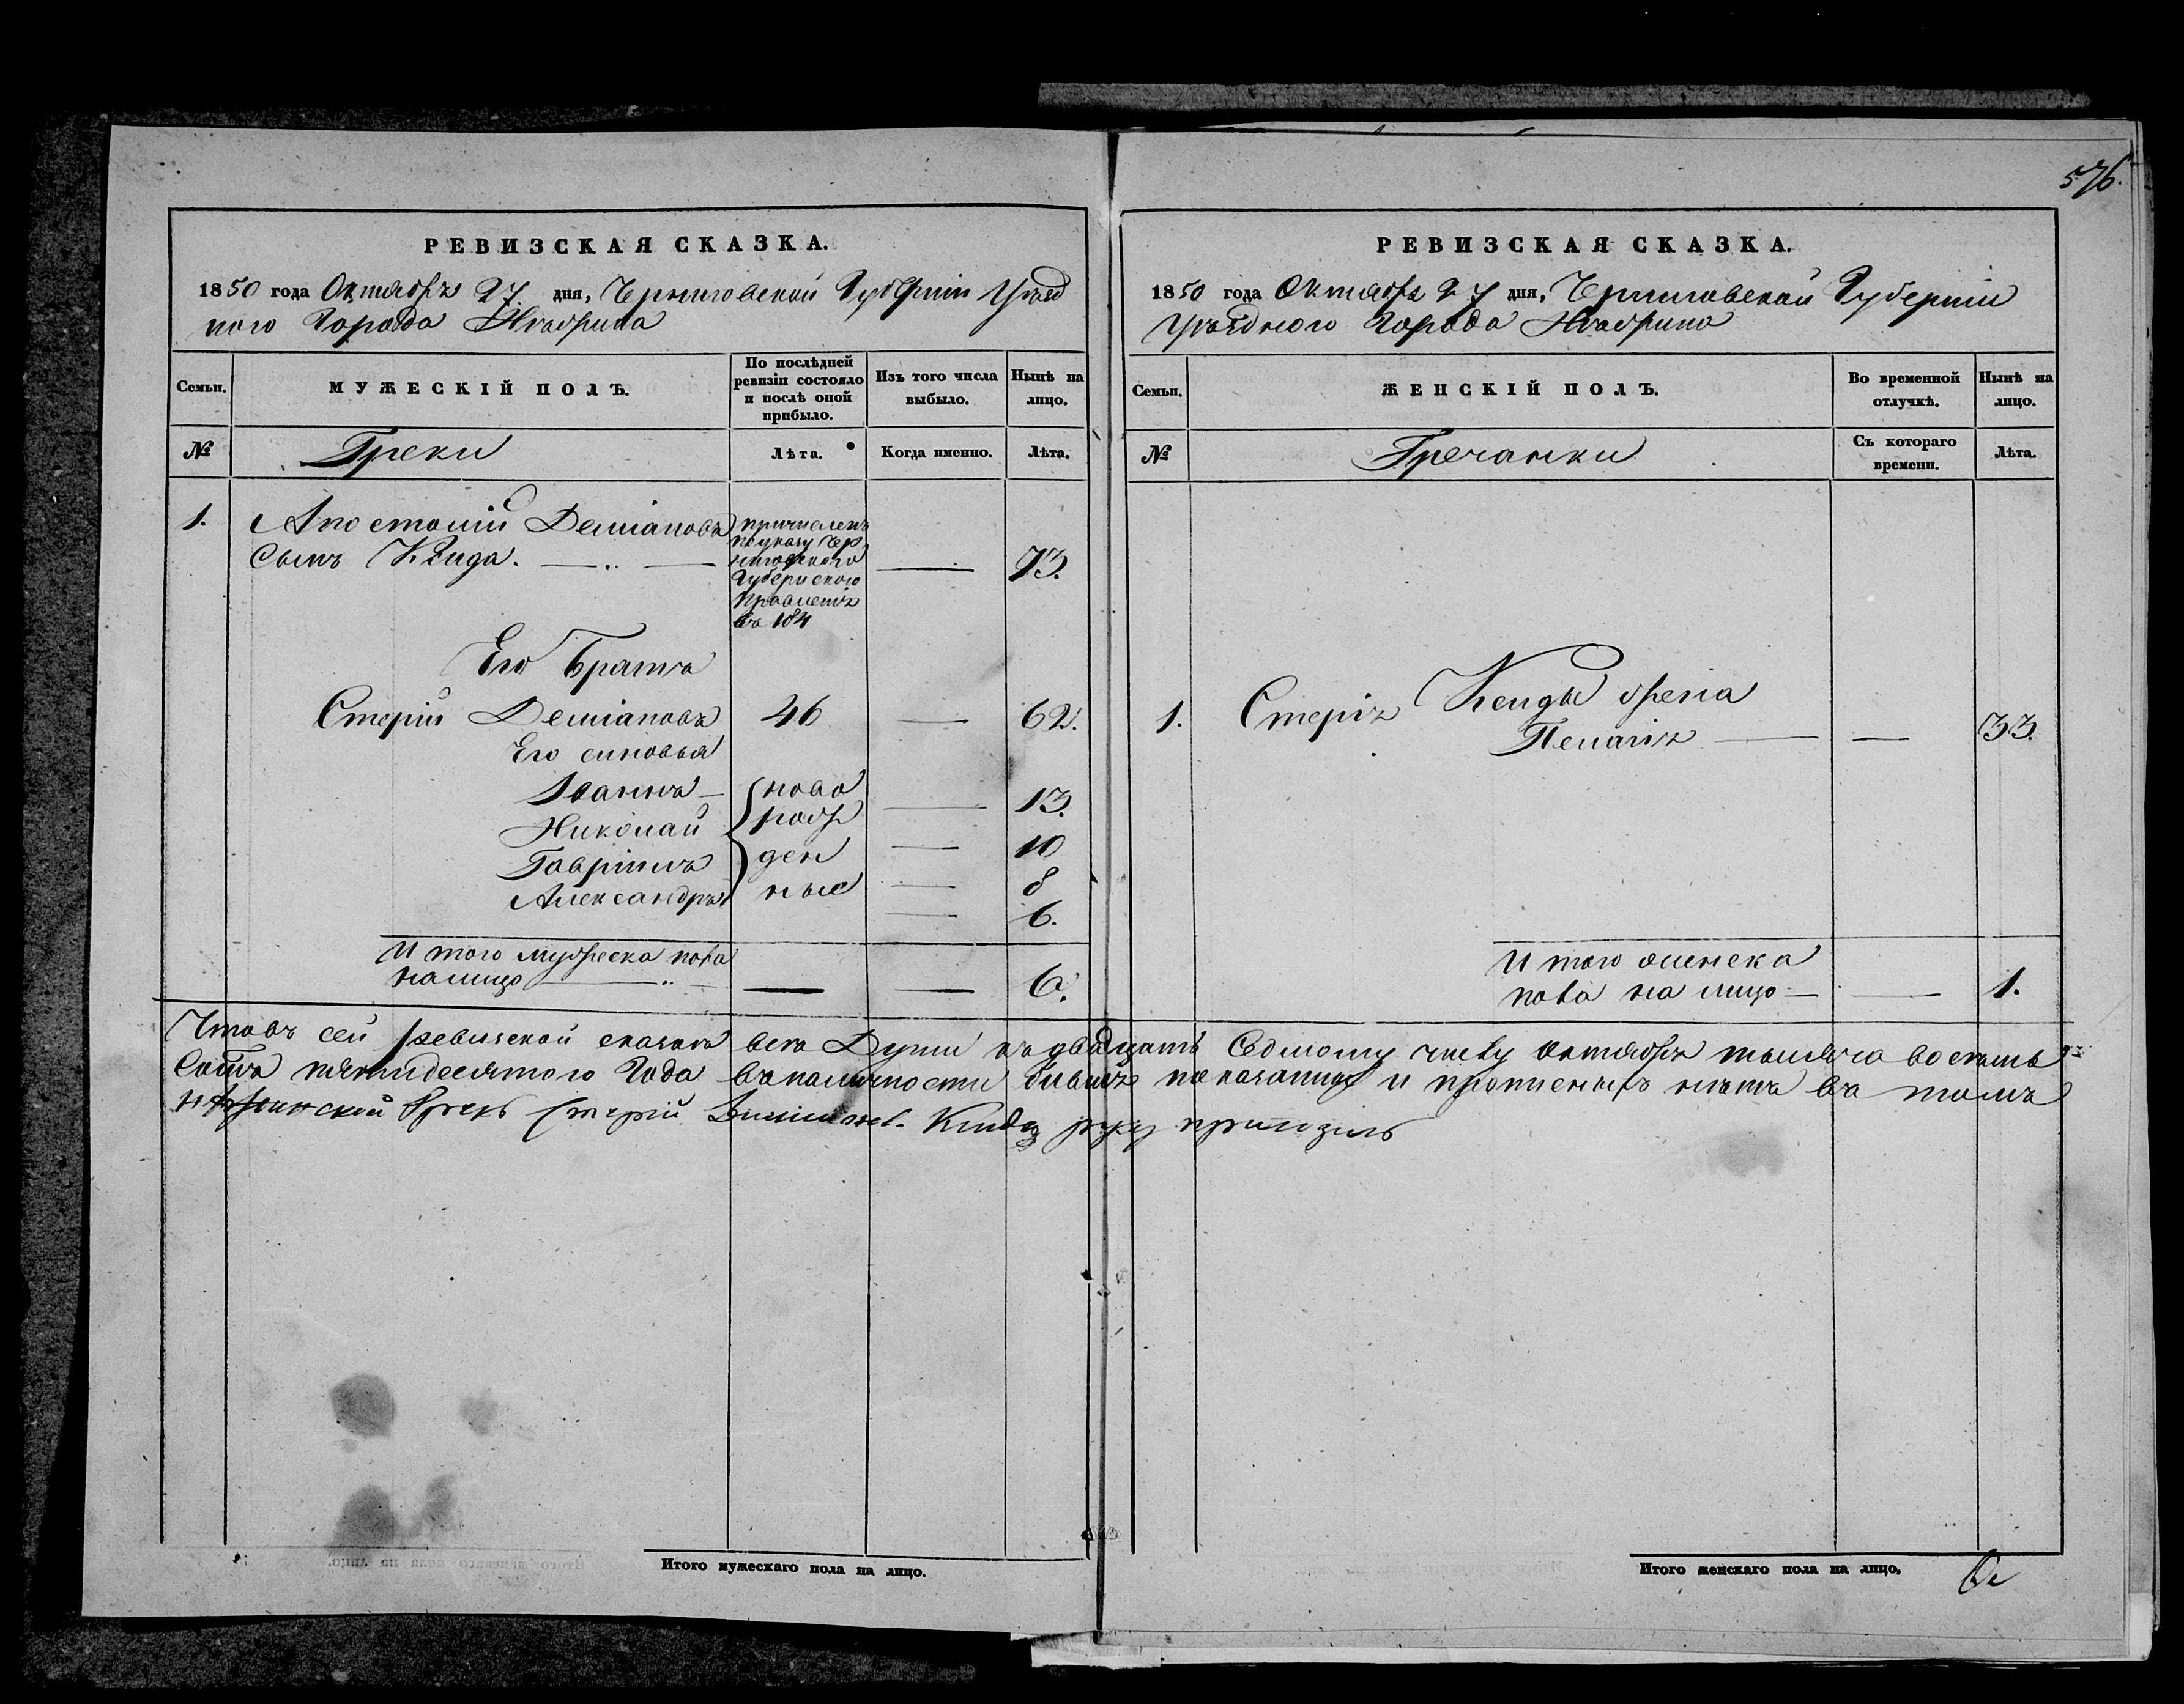 576.
РЕВИЗСКАЯ СКАЗКА.
1850 года Октября 27 дня, Черниговской Губерніи Уѣзд
ного Города Нѣжина
Семьи.
МУЖЕСКІЙ ПОЛЪ.
По послѣдней ревизіи состояло и послѣ оной прибыло.
Изъ того числа выбыло.
Нынѣ на лицо.
№
Греки
Лѣта.
Когда именно.
Лѣта.
1. Апостолій Деміановъ
сынъ Кѣнда. 73.
причисленъ
по указу Чер
ниговского
Губернского
Правленія
въ 184
Его Братъ
Стерій Деміановъ 46 — 62.
Его синовья
Іваннъ — 13.
Николай — 10
Гавріилъ — 8
Александръ — 6.
ново
рож
ден
ные
И того мужеска пола
налицо — — 6.
РЕВИЗСКАЯ СКАЗКА.
1850 года Октября 27 дня, Черниговской Губерніи
Уѣздного Города Нѣжина
Семьи.
ЖЕНСКІЙ ПОЛЪ.
Во временной отлучкѣ.
Нынѣ на лицо.
№
Гречанки
Съ котораго времени.
Лѣта.
1. Стерія Кенды жена
Пелагія — — 33.
И того женска
пола на лицо — — 1.
Что въ сей ревизской сказкѣ всѣ Души къ двадцать Седмому числу октября тысяча восемь
сотъ пятидесятого Года въ наличности бывшія показанны и прописныхъ нѣтъ въ томъ
нѣжинской Грекъ Стерій Киндa руку приложилъ
Итого мужескаго пола на лицо.
Итого женскаго пола на лицо.